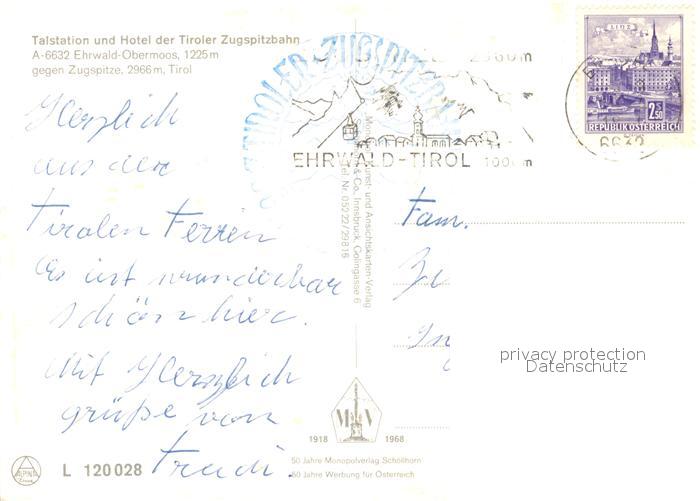 Talstation und Hotel der Tiroler Zugspitzbahn
A-6632 Ehrwald-Obermoos, 1225 m
gegen Zugspitze, 2966 m, Tirol
Herzlich
aus den
Tirolen Ferien
Es ist wunderbar
schön hier.
Mit Herzlich
grüße von
Trudi.
TIROLER ZUGSPITZBAHN
EHRWALD-TIROL 1000m
LINZ
2.50
REPUBLIK ÖSTERREICH
6632
Fam.
Kunst- und Ansichtskarten-Verlag
& Co., Innsbruck, Gölingasse 6
Tel. Nr. 05222/29816
privacy protection
Datenschutz
1918 MV 1968
50 Jahre Monopolverlag Schöllhorn
50 Jahre Werbung für Österreich
ALPINA
L 120 028